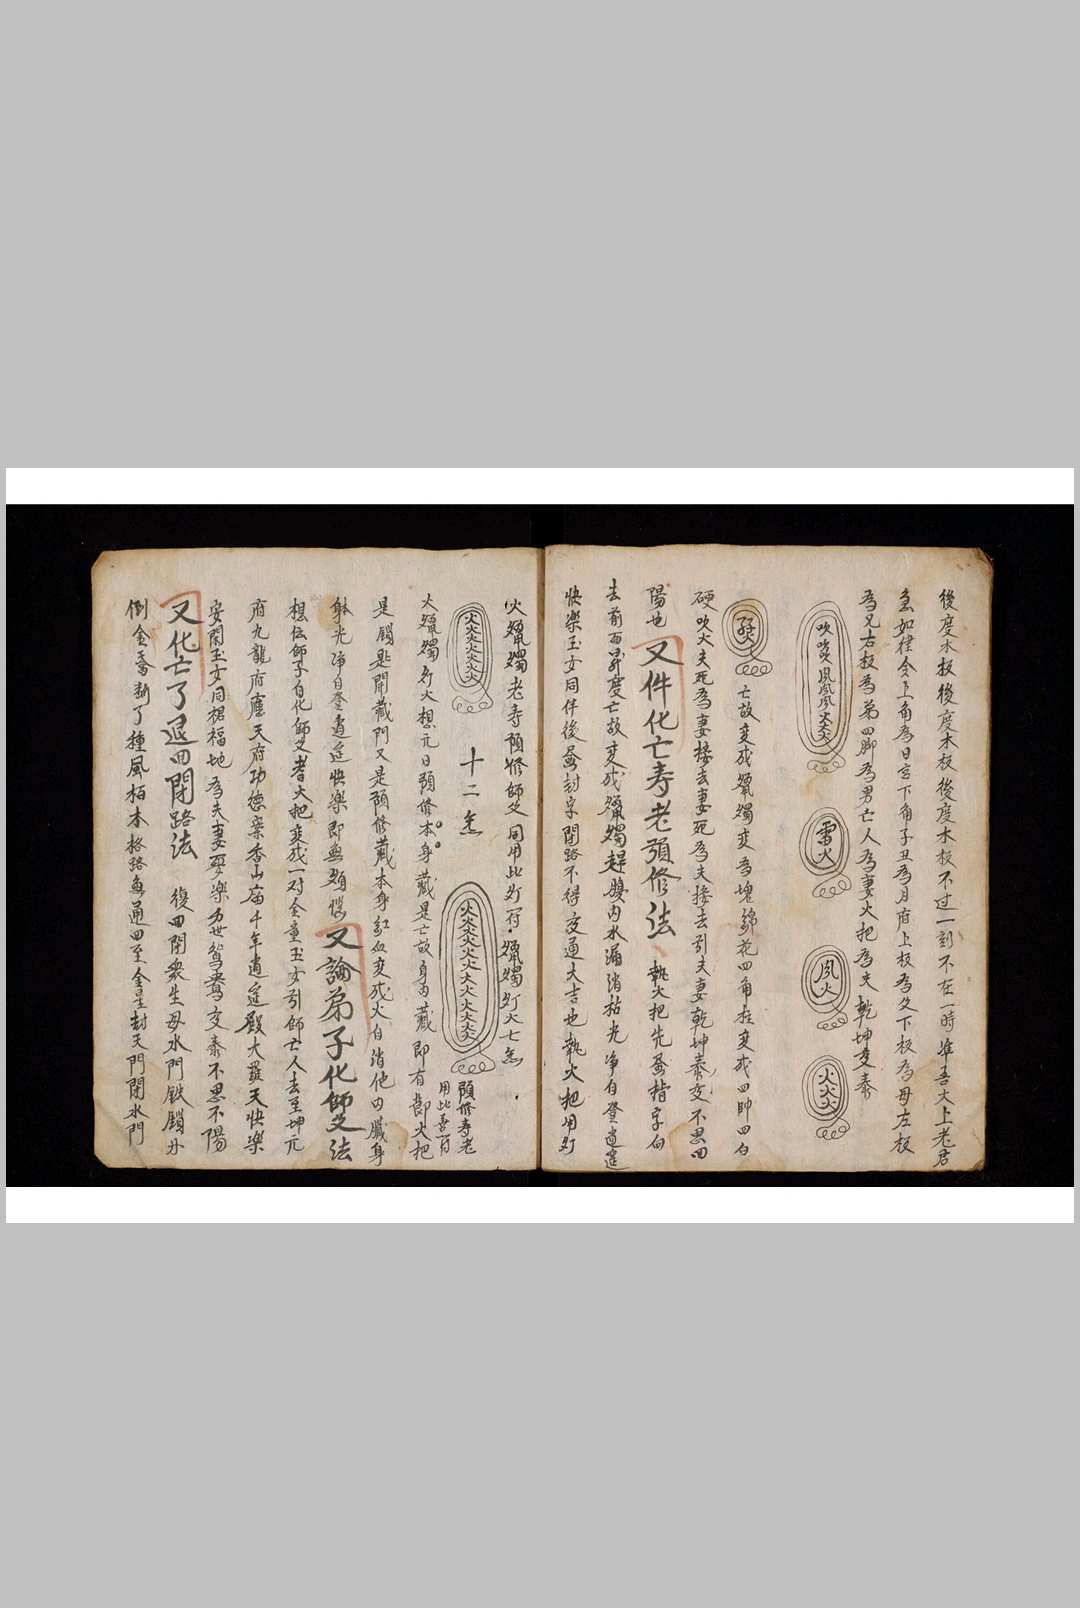 後度木板後度木板後度木板不过一刻不在一時准吾大上老君
急如律令上角為日宮下角子丑為月府上板為父下板為母左板
為兄右板為弟四脚為男亡人為妻火把為夫乾坤交泰
吹吹吹風風風火火火
雷火
風火
火火火
亡故变成蠟燭变為塊錦花四角柱变成四帥四白
硬吹火夫死為妻接去妻死為夫接去引夫妻乾坤泰交不思四
陽也
又件化亡寿老預修法
執火把先蚕指字向
去前面昇度亡故变成蠟燭趕腹内水漏消枯光净自登逍遥
快楽玉女同伴後蚕封字閉路不得交通大吉也執火把用灯
火蠟燭老寿預修師父同用此灯符蠟燭灯火七盏
火火火火火火火
十二盏
火火火火火火火火火火火火
預修寿老
用此盏符
火蠟燭灯火想元日預修本身藏是亡故身内藏即有節火把
是鎖匙開藏門又是預修藏本身紅血变成火自消他内臟身
躰光净自登逍遥快樂即無煩惱
又論弟子化師父法
想伝師子自化師父者火把变成一对金童玉女引師亡人去至坤元
府九龍府應天府功德案香山庙千年逍遥殿大羅天快樂
安閑玉女同裙福地為夫妻娶樂万世鴛鴦交泰不思不陽
又化亡了退四閉路法
後四閉衆生母水門鉄鎖丹
倒金喬断了種風栢本格路無通四至金星封天門閉水門